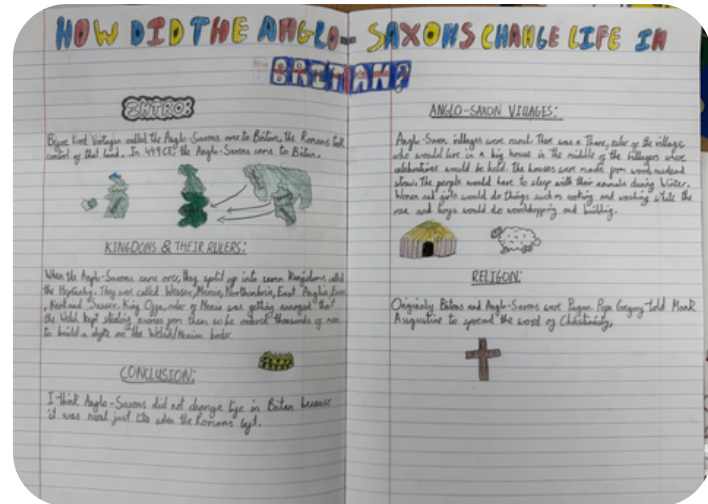 HOW DID THE ANGLO-SAXONS CHANGE LIFE IN
BRITIAN?
INTRO:
Before lord Vortagen called the Anglo-Saxons over to Britain, the Romans took
control of that land. In 449CE, the Anglo-Saxons came to Britain.
KINGDOMS & THEIR RULERS:
When the Anglo-Saxons came over, they split up into seven kingdoms called
the Heptarchy. They were called Wessex, Mercia, Northumbria, East Anglia, Essex
, Kent and Sussex. King Offa, ruler of Mercia was getting annoyed that
the Welsh kept stealing from them so he ordered thousands of men
to build a dyke on the Welsh/Mercian border.
CONCLUSION:
I think Anglo-Saxons did not change life in Britain because
it was rural just like when the Romans left.
ANGLO-SAXON VILLAGES:
Anglo-Saxon villages were rural. There was a Thane, ruler of the village
who would live in a big house in the middle of the villages where
celebrations would be held. The houses were made from wood, mud and
straw. The people would have to sleep with their animals during Winter.
Women and girls would do things such as cooking and washing while the
men and boys would do woodchopping and building.
RELIGON:
Originally Britons and Anglo-Saxons were Pagans. Pope Gregory told Monk
Augustine to spread the word of Christianity.